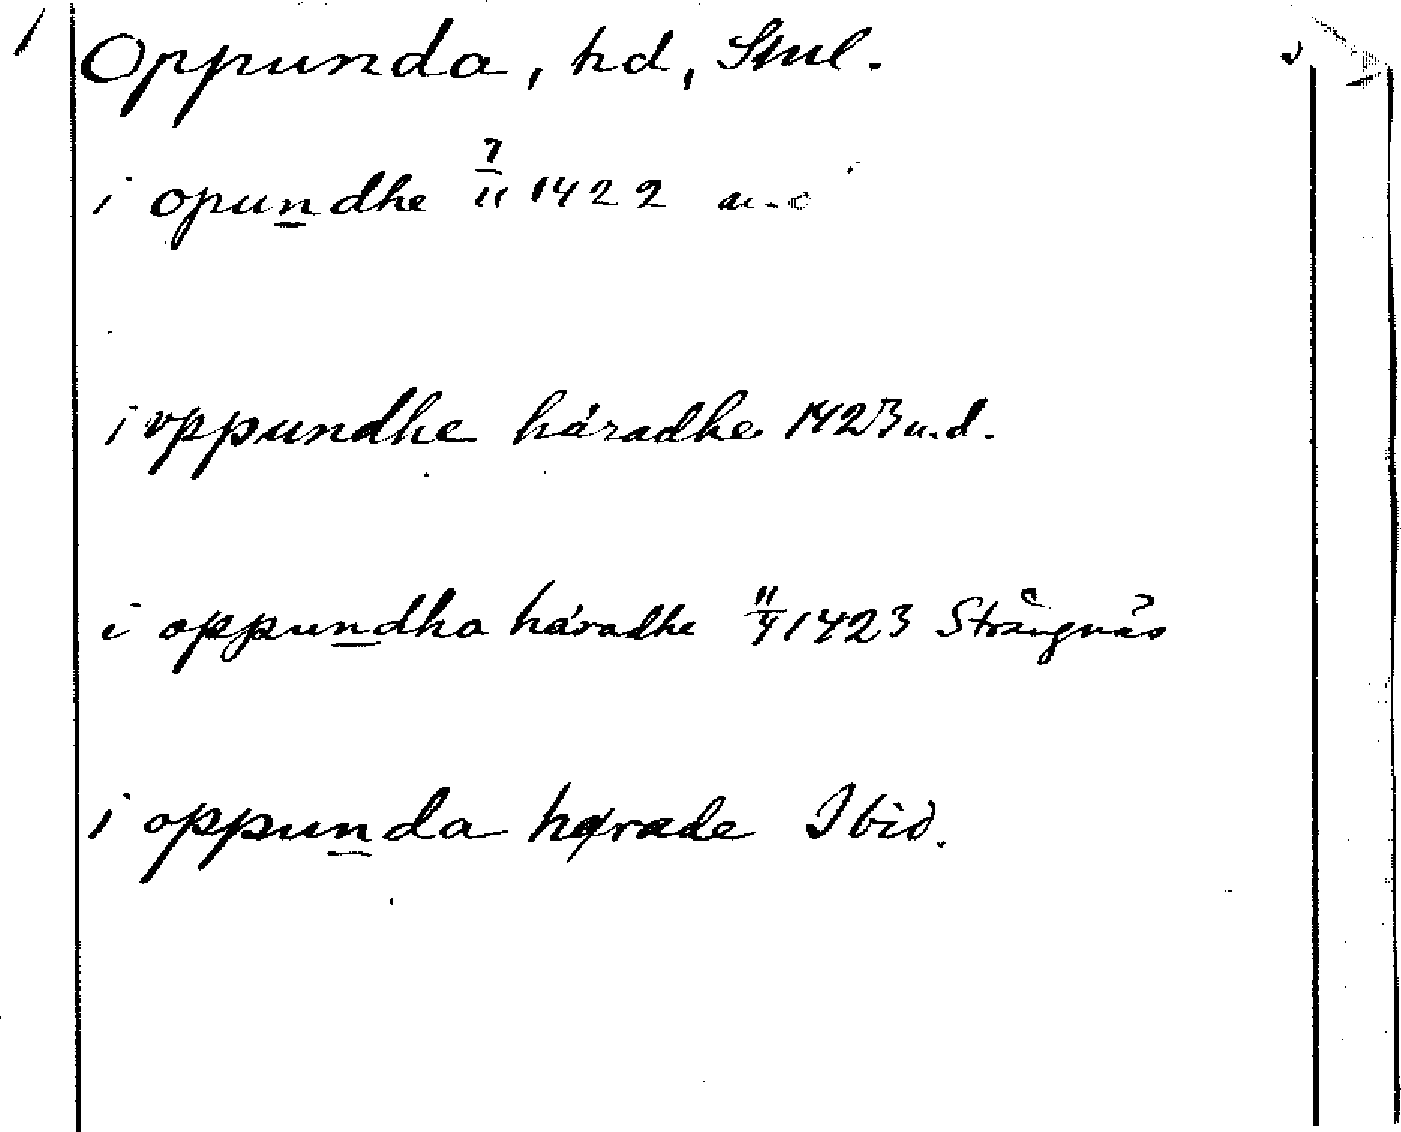 Oppunda, hd, Sml.
i opundhe 7/11 1422
i oppundhe häradhe 1423 u.d.
i oppundha häradhe 11/4 1423 Strängnäs
i oppunda hørade Ibid.